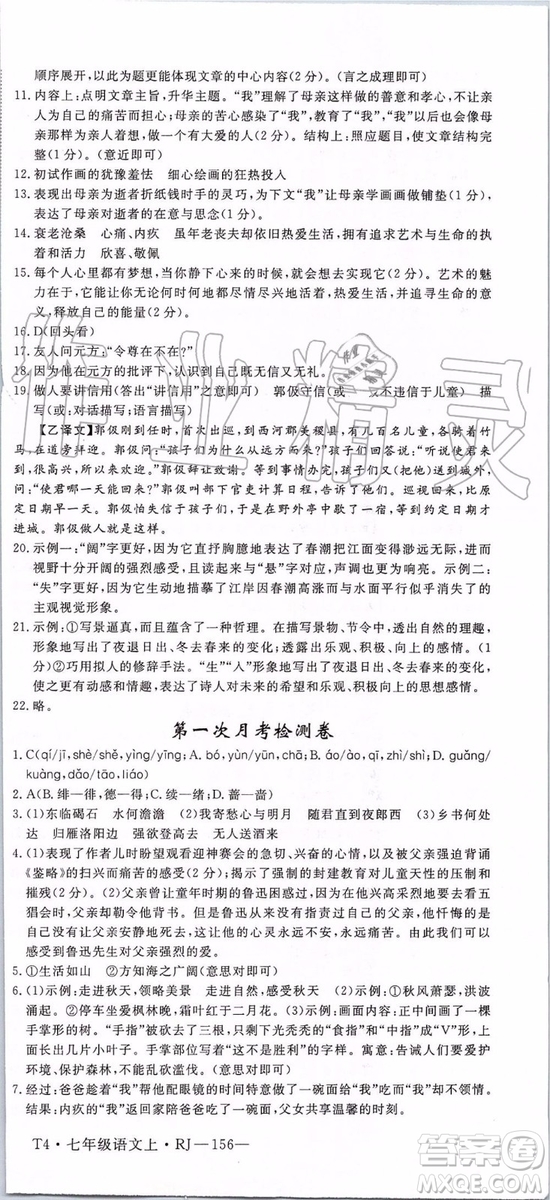 顺序展开,以此更能体现文章的中心内容(2分)。(言之成理即可)
11.内容上:点明文章主旨,升华主题。“我”理解了母亲这样做的善意和孝心,不会
为自己的痛苦而担心;母亲的苦心感染了“我”,教育了“我”,“我”以后也会像母
亲一样为亲人着想,做一个有大爱的人(2分)。结构上:照应题目,使文章结构完
整(2分)。(意近即可)
12.初试作画的犹豫羞怯 细心绘画的狂热投入
13.表现出母亲为逝者折纸钱时手的灵巧(1分),为下文“我”让母亲学画画做铺垫(1分),
表现了母亲对逝者的在意与思念(2分)。
14.衰老沧桑 心痛、内疚 虽年老丧夫却依旧热爱生活,并执着追求艺术与生命的执
着和活力 欣喜、敬佩
15.每个人心里都有梦想,当你静下心来的时候,就会开启新的人生(2分)。艺术的魅
力在于,它能让你无论何时何地,尽情地热爱生活,并追寻生命的意义,
释放自己的能量(2分)。
16.D(回头看)
17.友人问元方:“令尊在不在?”
18.因为他在元方的批评下,认识到自己既无信又无礼。
19.做人要讲信用(答出“讲信用”之意即可) 郭伋守信(或 不违信于儿童) 描
写(或:对话描写;语言描写)
【乙译文】郭伋刚到任时,首次出巡,到西河郡美稷县,有几百名儿童,各骑着竹
马,在道旁拜迎。郭伋问:“孩子们为什么自己远来?”孩子们回答说:“听说使君
来到,很高兴,所以来欢迎。”郭伋辞让致谢。等到事情办完,孩子们又送到城外,
问:“使君哪一天能回来?”郭伋吩咐部下官吏计算日程,告诉了他们。巡视回来,比
原定日期早了一天,郭伋怕失信于孩子们,于是在野外亭中歇宿,等到约定日期才
进城。郭伋做人就是这样。
20.示例一:“阔”字更好,一语双关,此字既直抒胸臆地表达了春潮把江面变得渺远无际,
视野十分开阔的强烈感受,更与直抒胸臆的感觉相连,声调也更为响亮。示例二:
“失”字更好,生动形象地描摹了江岸因春潮高涨而与水面平行似乎消失了的
主观视觉形象。
21.示例:①写景逼真,而且蕴含了一种哲理。在描写景物、节令之中,透出自然的理趣,
形象地写出了夜退日出、冬去春来的变化;透露出乐观、积极、向上的感情。
(1分)②巧用拟人的修辞手法。“生”“入”形象地写出了夜退日出、冬去春来的变
化,赋予它们以人的意志和情趣,表达了诗人对人生的希望和乐观、积极的感情。
22.略。
第一次月考检测卷
1.C(qí/jī,shè/shě,yìng/yīng;A.bó,yùn,chā;B.áo/ào,qī,zhì/shì;D.guǎng/
kuàng,dǎo/tāo,liáo)
2.A(B.绯—徘,德—得;C.续—绪;D.蔷—啬)
3.(1)东临碣石 水何澹澹 (2)我寄愁心与明月 随君直到夜郎西 (3)乡书何处
达 归雁洛阳边 强欲登高去 无人送酒来
4.(1)表现了作者儿时盼望观看迎神赛会的急切、兴奋的心情,以及被父亲强迫背诵
《鉴略》的扫兴和痛苦,从而揭示了强制的封建教育对儿童天性的压制和
摧残。(2)示例:父亲完全可以感受童年时期的鲁迅在他兴高采烈地要去看五
猖会时,却让他去背书的痛苦。但鲁迅先生自始至终没有指责过自己的父亲,只
会让父亲安静地死去,没有让父亲安静地死去,他忏悔,永远痛苦。可以
感受到鲁迅先生对父亲强烈的爱。
5.①生活如山 ②方知海之广阔(意思对即可)
6.(1)示例:走进秋天,领略美景 走进秋天,感受生活 (2)示例:秋风萧瑟,洪波
涌起。 ②停车坐爱枫林晚,霜叶红于二月花。 (3)示例:画面主体由一棵
手掌形的树。“手指”被砍伐,只剩下光秃秃的“食指”和“中指”成“V”形,上面
长出几片小叶子。手掌上方写有“最后的胜利?”的字样。寓意:人类要爱护
环境,保护树木,不能乱砍滥伐。(意对即可)
7.经过:爸爸趁着“我”帮他配眼镜的时间特意做了一碗面,“我”却不领情。
结果:内疚的“我”给爸爸也做了一碗面,父女共享温馨的时刻。
T4·七年级语文上·RJ—156—
作业精灵